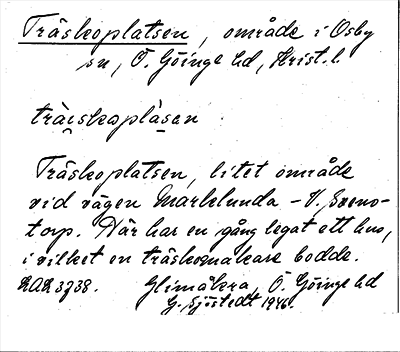 Träskoplatsen, område i Osby
sn, Ö. Göinge hd, Krist. l.
träskoplasan
Träskoplatsen, litet område
vid vägen Marklunda - V. Svens-
torp. Här har en gång legat ett hus,
i vilket en träskomakare bodde.
Glimåkra, Ö. Göinge hd
G. Sjöstedt 1946.